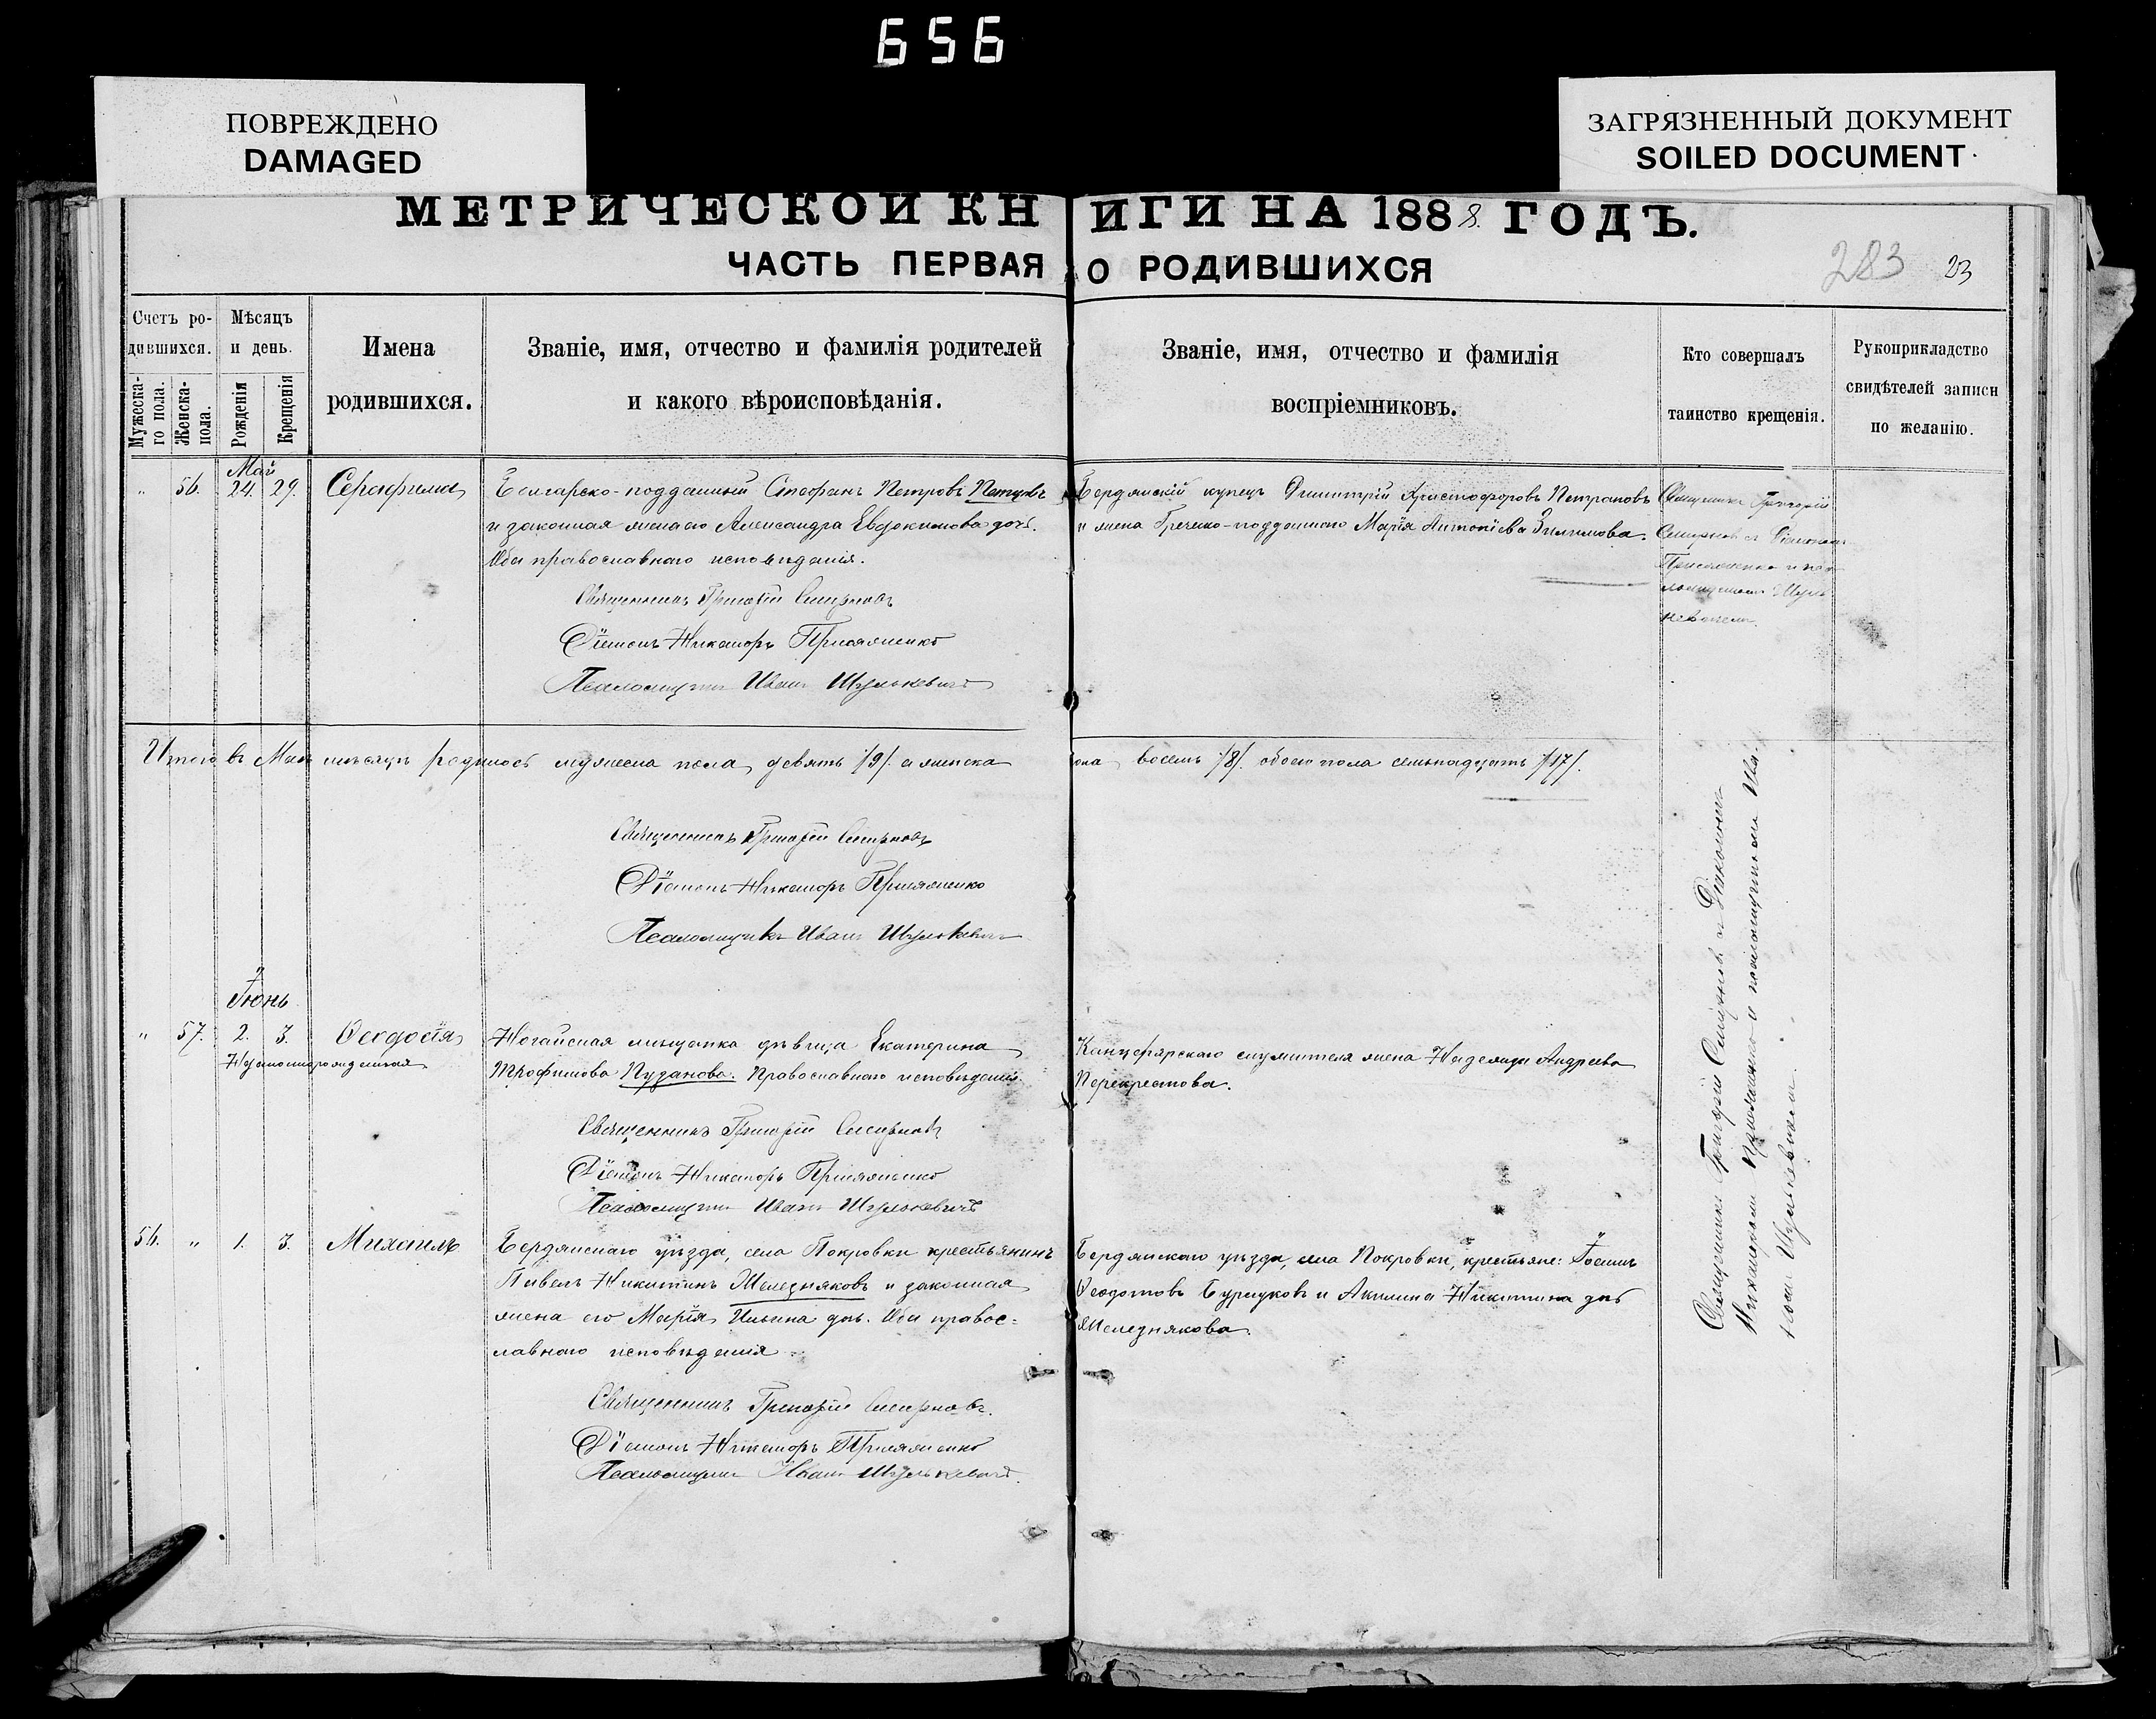 656
ПОВРЕЖДЕНО
DAMAGED
ЗАГРЯЗНЕННЫЙ ДОКУМЕНТ
SOILED DOCUMENT
МЕТРИЧЕСКОЙ КНИГИ НА 1888 ГОДЪ.
ЧАСТЬ ПЕРВАЯ О РОДИВШИХСЯ
283 23
Счетъ родившихся.
Мужескаго пола.
Женска- пола.
Мѣсяцъ и день.
Рожденія
Крещенія
Имена родившихся.
Званіе, имя, отчество и фамилія родителей
и какого вѣроисповѣданія.
Званіе, имя, отчество и фамилія
воспріемниковъ.
Кто совершалъ
таинство крещенія.
Рукоприкладство
свидѣтелей записи
по желанію.
Май
" 56. 24. 29. Серафима
Болгарско-подданный Стефанъ Петровъ
и законная жена его Александра Евдокимова дочь.
Оба православнаго исповѣданія.
Священникъ Григорій Смирновъ
Діаконъ Никаноръ Присяженко
Псаломщикъ Иванъ Шулькевичъ
Бердянскій купецъ Димитрій Христофоровъ
и жена Греческо-подданнаго Марія Антоніева
Священникъ Григорій
Смирновъ Діаконъ
Присяженко и пса-
ломщикъ Шуль
кевичъ.
Итого въ Маѣ мѣсяцѣ родилось мужеска пола девять /9/. а женска
пола восемь /8/. обоего пола семьнадцать /17/.
Священникъ Григорій Смирновъ
Діаконъ Никаноръ Присяженко
Псаломщикъ Иванъ Шулькевичъ
Іюнь
" 57. 2. 3. Ѳеодосія
Незаконнорожденная
Ногайская мѣщанка дѣвица Екатерина
Трофимова Пузанова. Православнаго исповѣданія.
Священникъ Григорій Смирновъ
Діаконъ Никаноръ Присяженко
Псаломщикъ Иванъ Шулькевичъ
Канцелярскаго служителя жена Надежда Андреева
Перекрестова.
56. " 1. 3. Михаилъ
Бердянскаго уѣзда, села Покровки крестьянинъ
Павелъ Никитинъ Железняковъ и законная
жена его Марія Ильина дочь. Оба правос=
лавнаго исповѣданія.
Священникъ Григорій Смирновъ.
Діаконъ Никаноръ Присяженко
Псаломщикъ Иванъ Шулькевичъ.
Бердянскаго уѣзда, села Покровки, крестьяне: Іосифъ
Ѳеодотовъ и Акилина Никитина дочь
Железнякова.
Священникъ Григорій Смирновъ съ Діакономъ
Никаноромъ Присяженко и псаломщикомъ Ива-
номъ Шулькевичемъ.